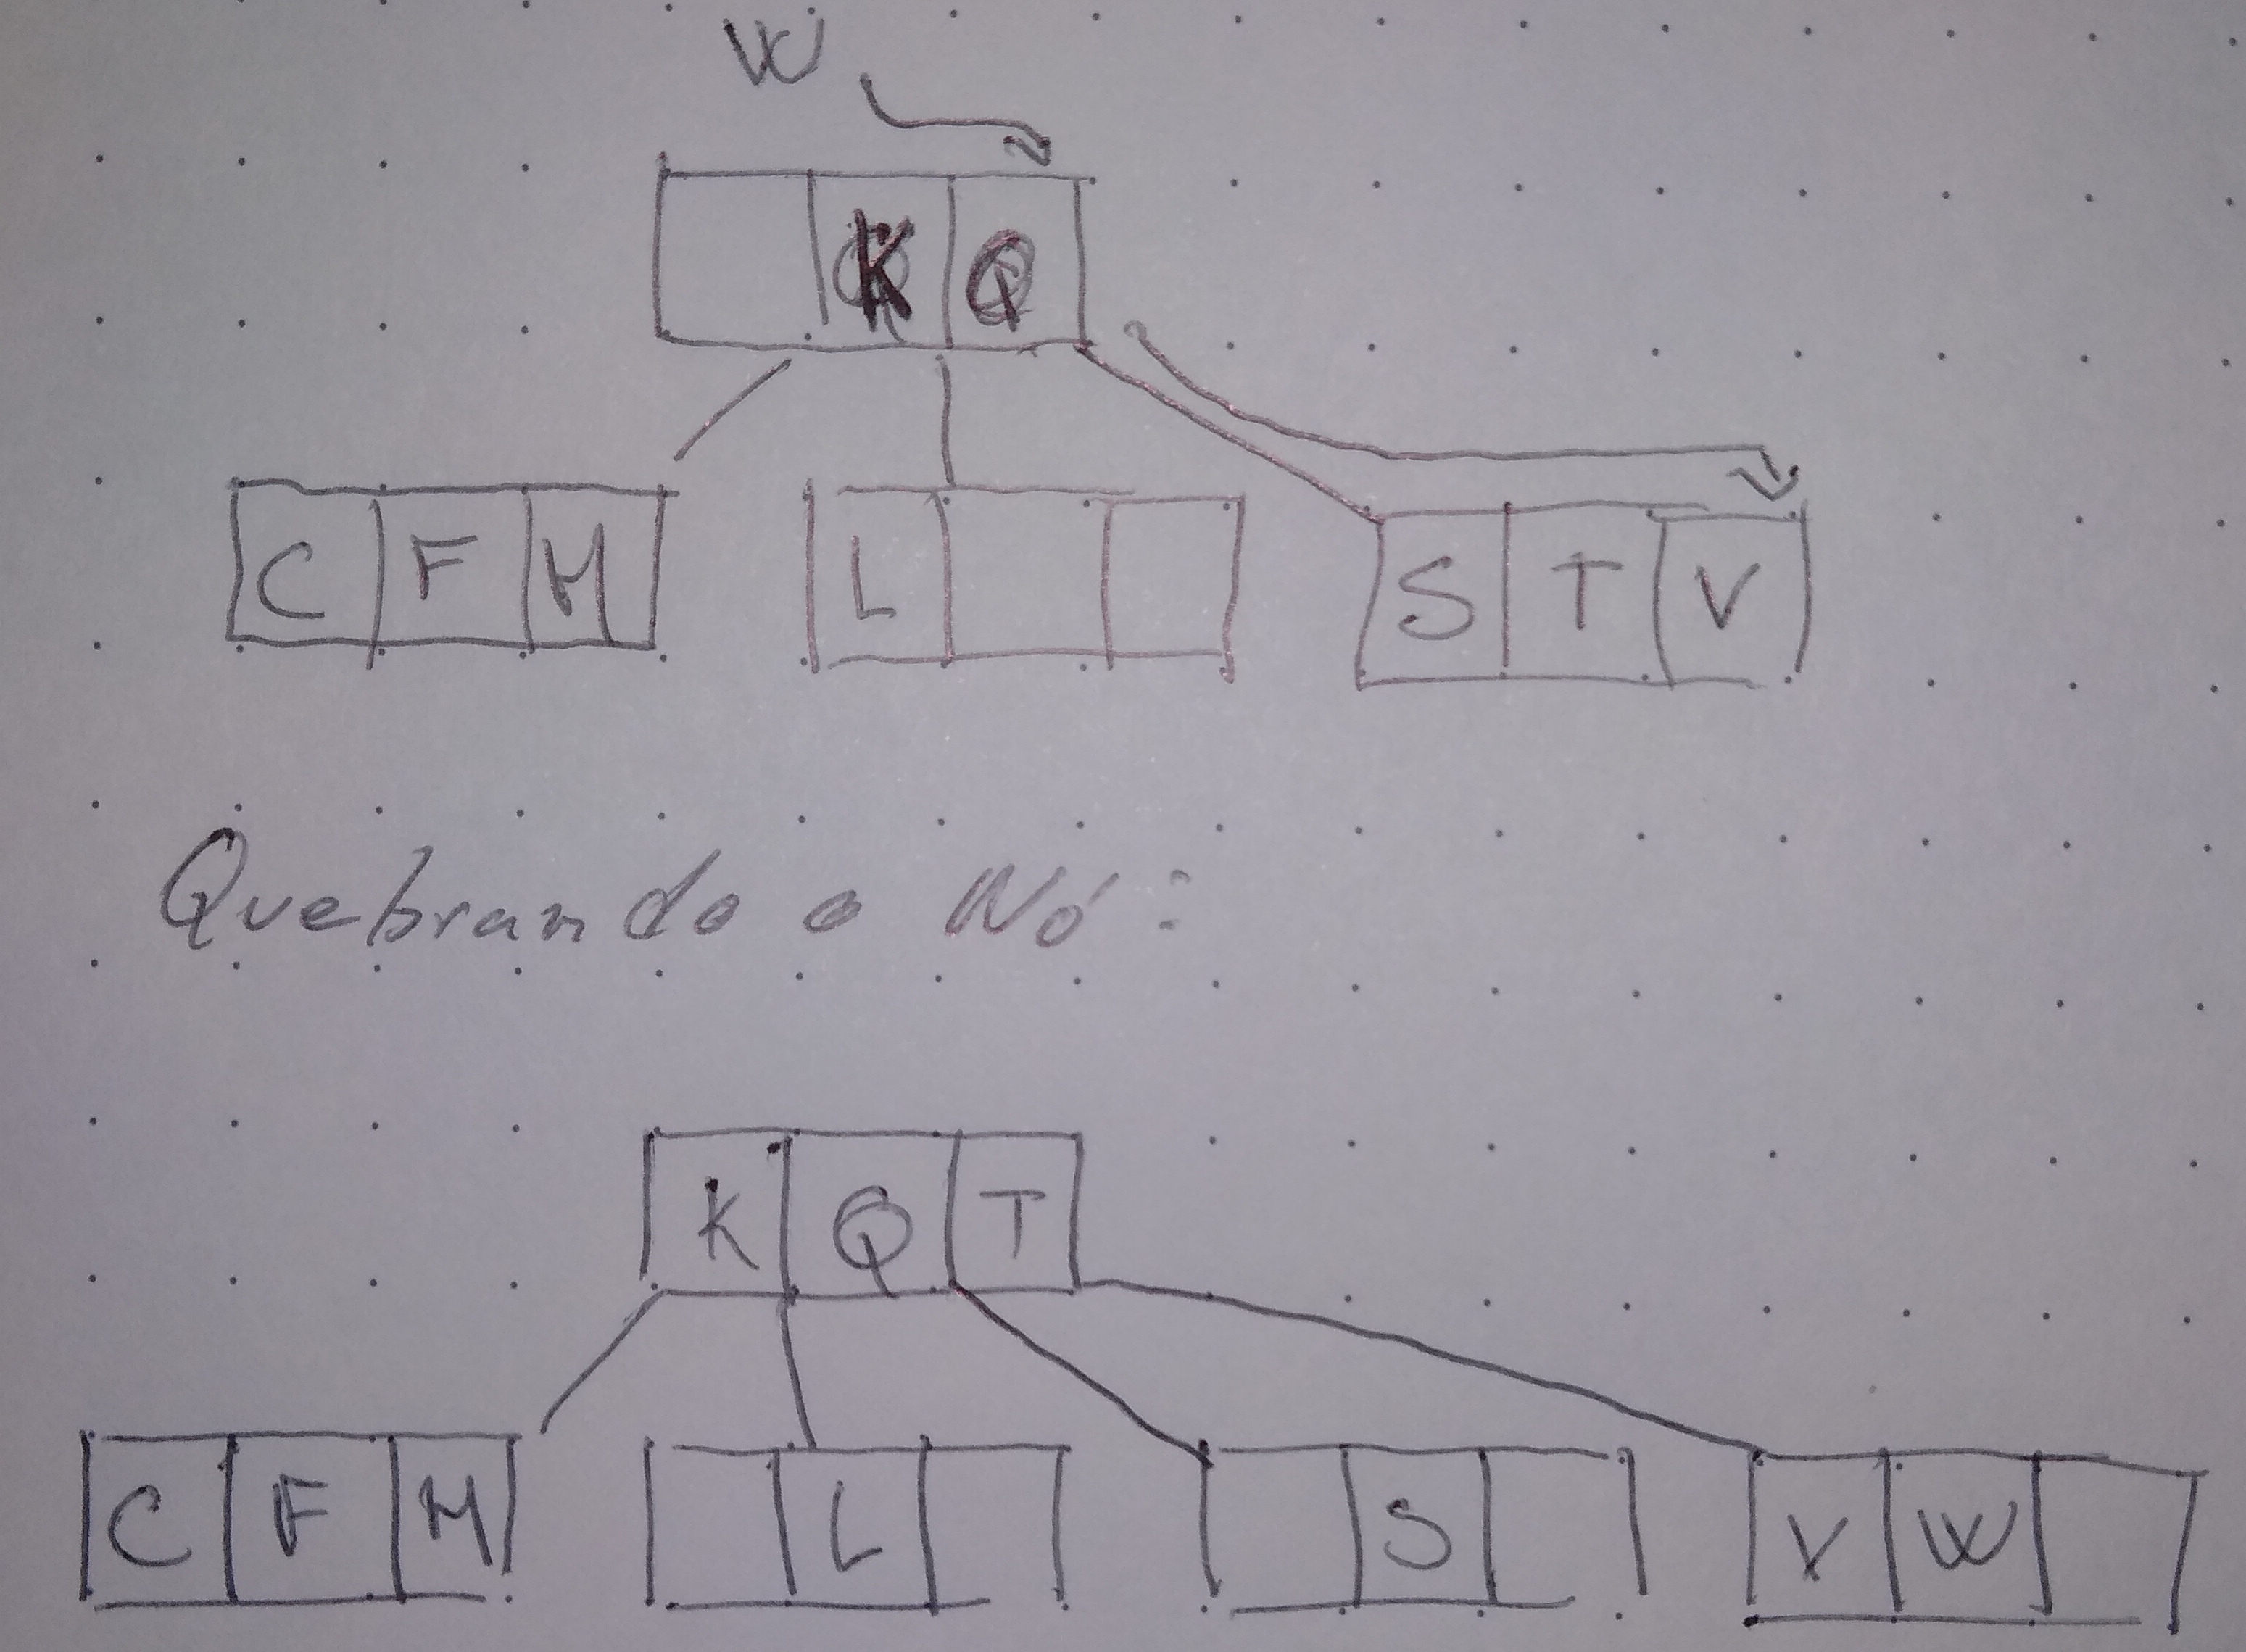 W
K Q
C F H L S T V
Quebrando o Nó:
K Q T
C F H L S V W